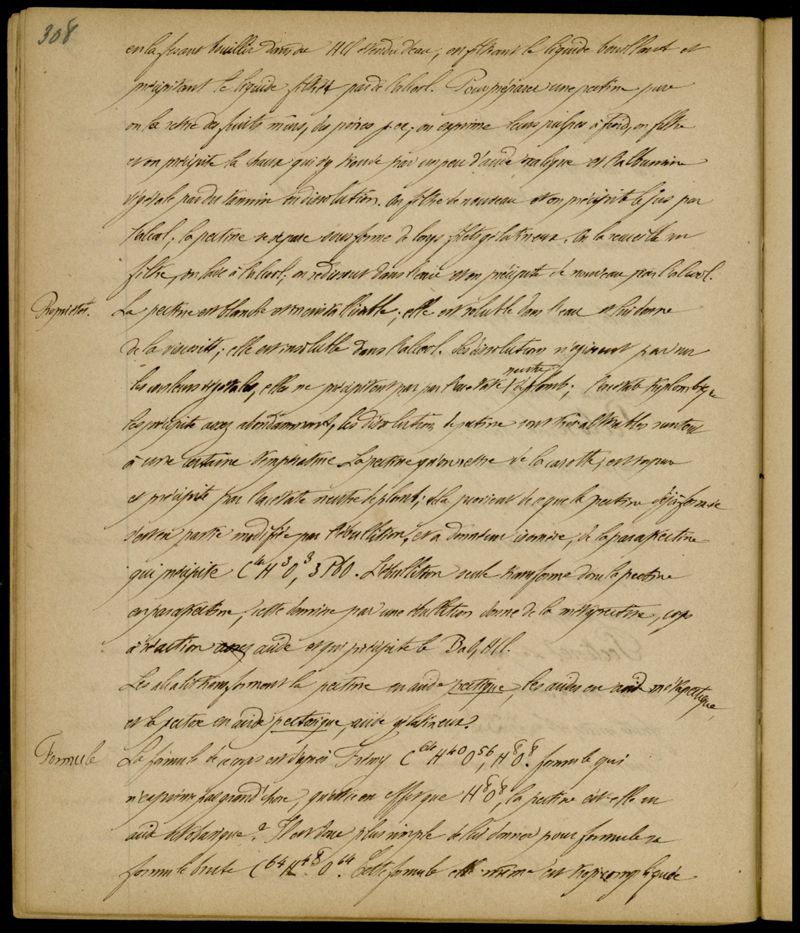 308
en la faisant bouillir dans de HCl étendu d'eau; en filtrant le liquide bouillant et
précipitant le liquide filtré par de l'alcool. Pour préparer une pectine pure
on la retire des fruits mûrs, des poires p. ex, on exprime leurs pulpes à froid, on filtre
et on précipite la chaux qui s'y trouve par un peu d'acide oxalique et l'albumine
végétale par du tannin en dissolution. On filtre de nouveau et on précipite le jus par
l'alcool, la pectine se sépare sous forme de longs filets gélatineux. On la recueille un
filtre, on lave à l'alcool; on redissout dans l'eau et on précipite de nouveau par l'alcool.
Propriétés. La pectine est blanche et incristallisable; elle est soluble dans l'eau et lui donne
de la viscosité; elle est insoluble dans l'alcool. Ses dissolutions n'agissent pas sur
les couleurs végétales, elles ne précipitent pas par l'acétate neutre de plomb; l'acétate triplombique
les précipite assez abondamment, les dissolutions de pectine sont très altérables surtout
à une certaine température. La pectine qu'on retire de la carotte, est impure
et précipite par l'acétate neutre de plomb; cela provient de ce que la pectine
s'est en partie modifiée par l'ébullition, et a donné un isomère, de la parapectine
qui précipite 3PbO. L'ébullition seule transforme donc la pectine
en parapectine, cette dernière par une ébullition donne de la métapectine, corps
à réaction assez acide et qui précipite le BaO, HCl.
Les alcalis transforment la pectine en acide pectique, les acides en acide métapectique,
et la pectase en acide pectosique, acide gélatineux.
Formule La formule de ce corps est d'après Frémy C⁶⁴H⁴⁰O⁵⁶, H⁸O⁸. formule qui
n'exprime pas grand'chose, qu'est-ce en effet que H⁸O⁸, la pectine est-elle un
acide octobasique? Il est donc plus simple de lui donner pour formule sa
formule brute C⁶⁴H⁴⁸O⁶⁴. Cette formule elle même est trop compliquée